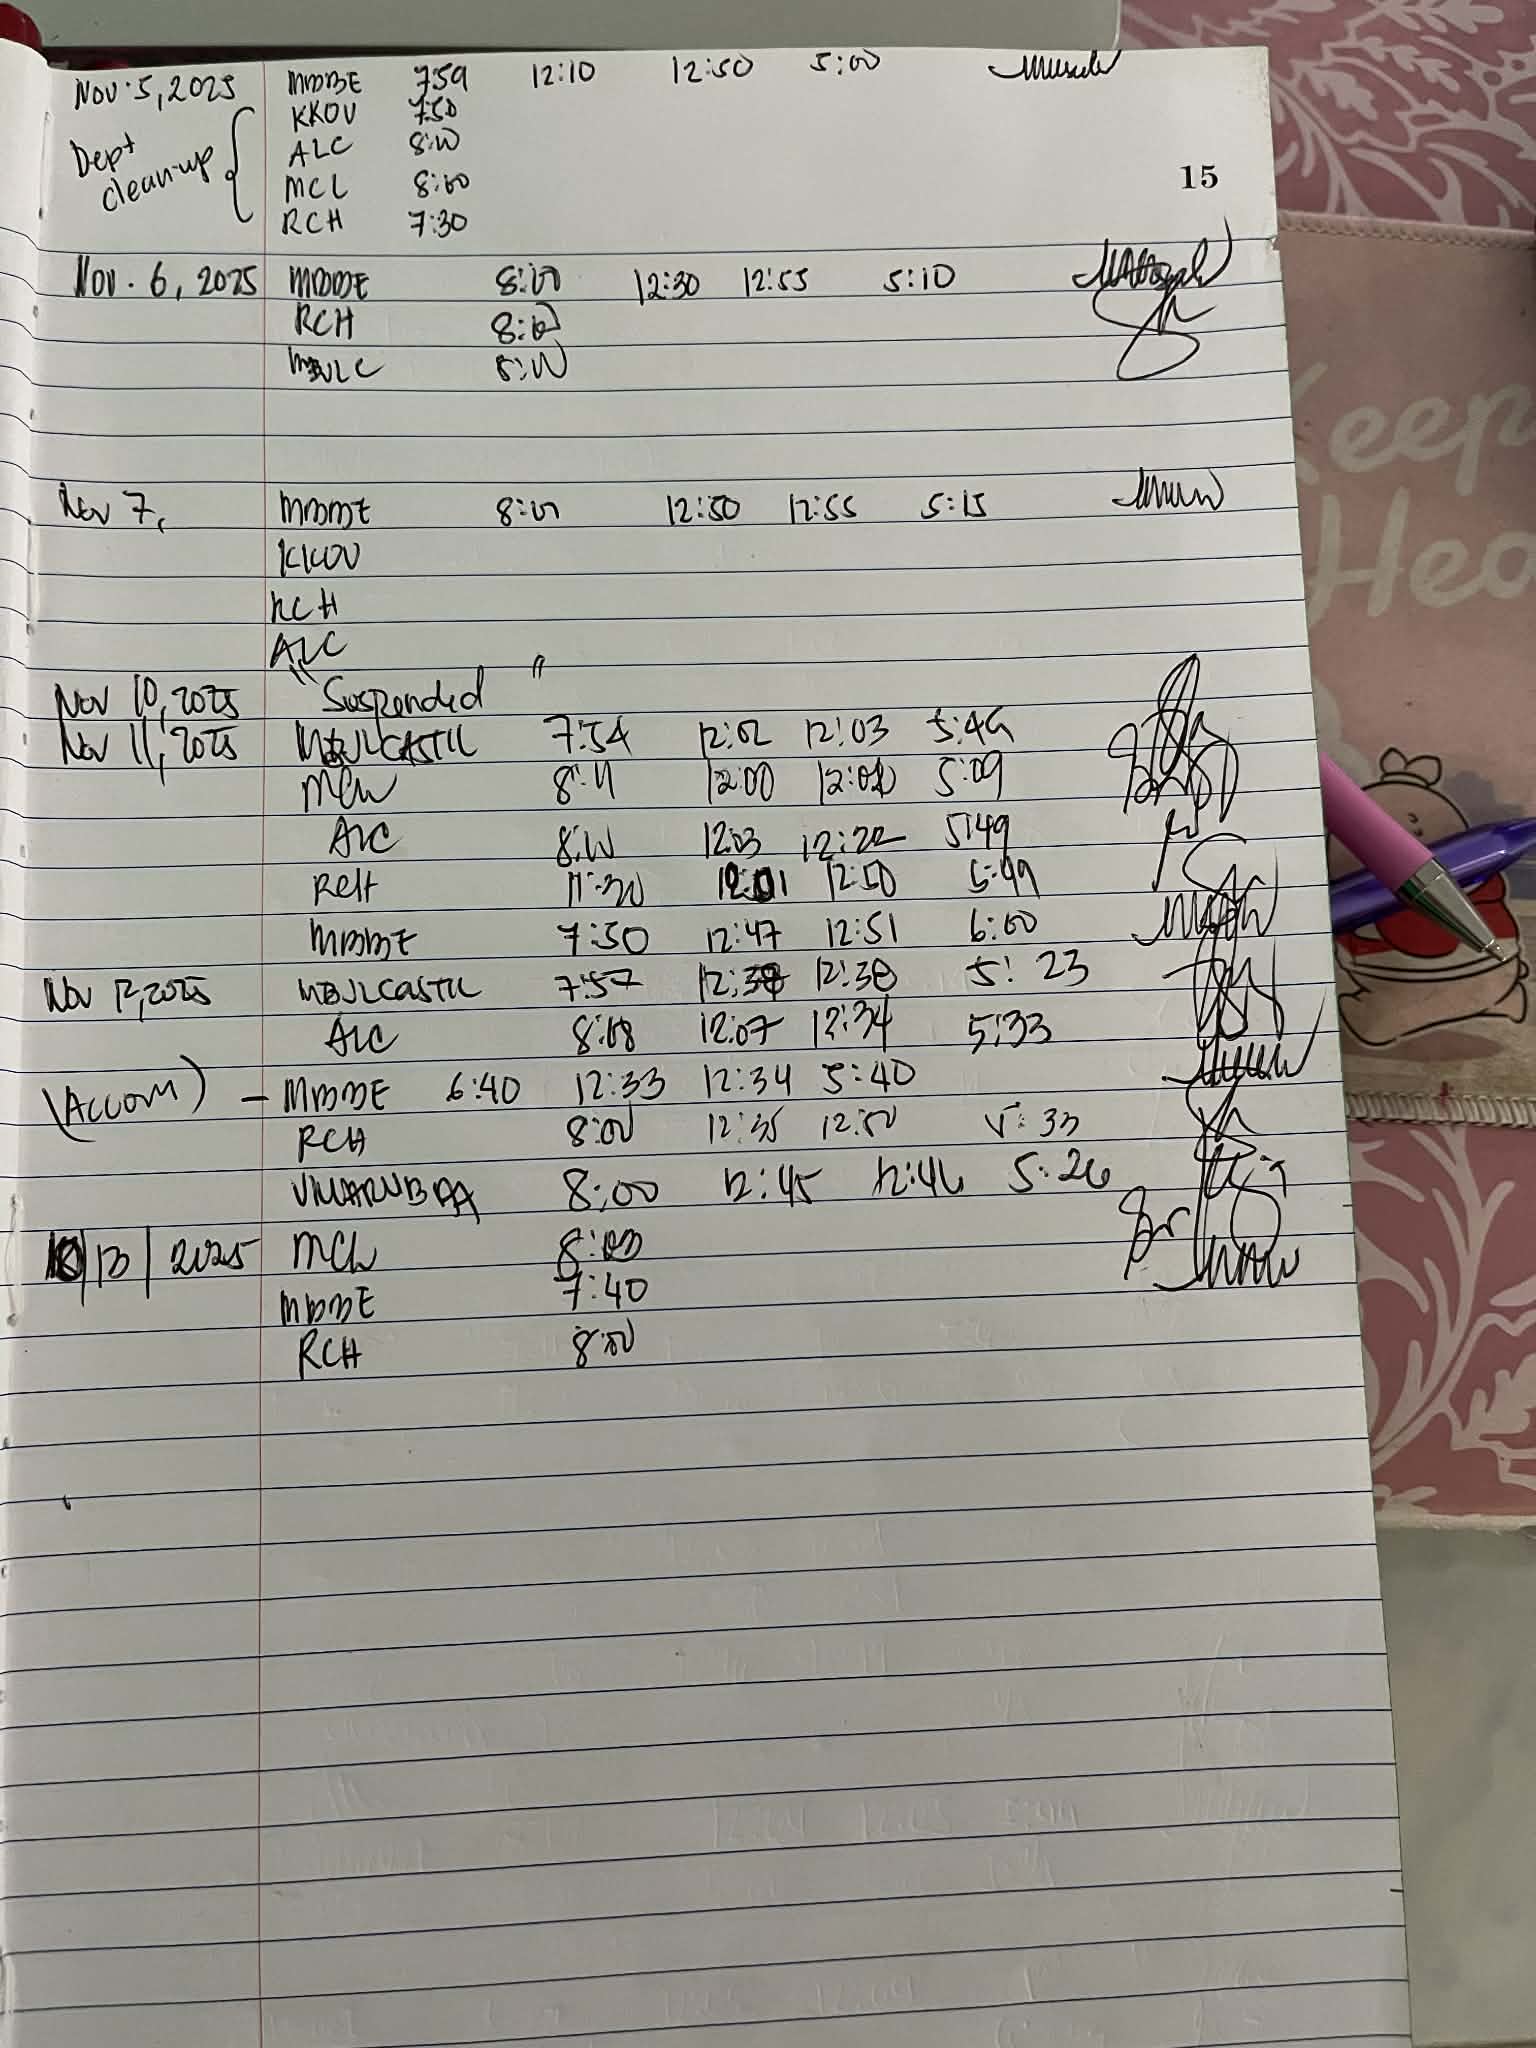 Nov. 5, 2025 MBBE 7:59 12:10 12:50 5:00
KKOV 7:50
Dept ALC 8:00
clean-up MCL 8:00
RCH 7:30
15
Nov. 6, 2025 MBBE 8:00 12:30 12:55 5:10
RCH 8:00
8:00
Nov 7, MBBE 8:00 12:50 12:55 5:15
KKOV
RCH
ALC
Nov 10, 2025 "Suspended"
Nov 11, 2025 7:54 12:02 12:03 5:49
MCL 12:00 5:09
ALC 8:00 12:03 12:22 5:49
RCH 12:01 12:50 5:49
MBBE 7:50 12:47 12:51 6:00
Nov 12, 2025 7:57 12:38 5:23
ALC 8:08 12:07 12:34 5:33
(ACCOM) - MBBE 6:40 12:33 12:34 5:40
RCH 8:00 12:35 12:50 5:33
8:00 12:45 12:46 5:26
/13/2025 MCL 8:03
MBBE 7:40
RCH 8:00
Keep
Hea